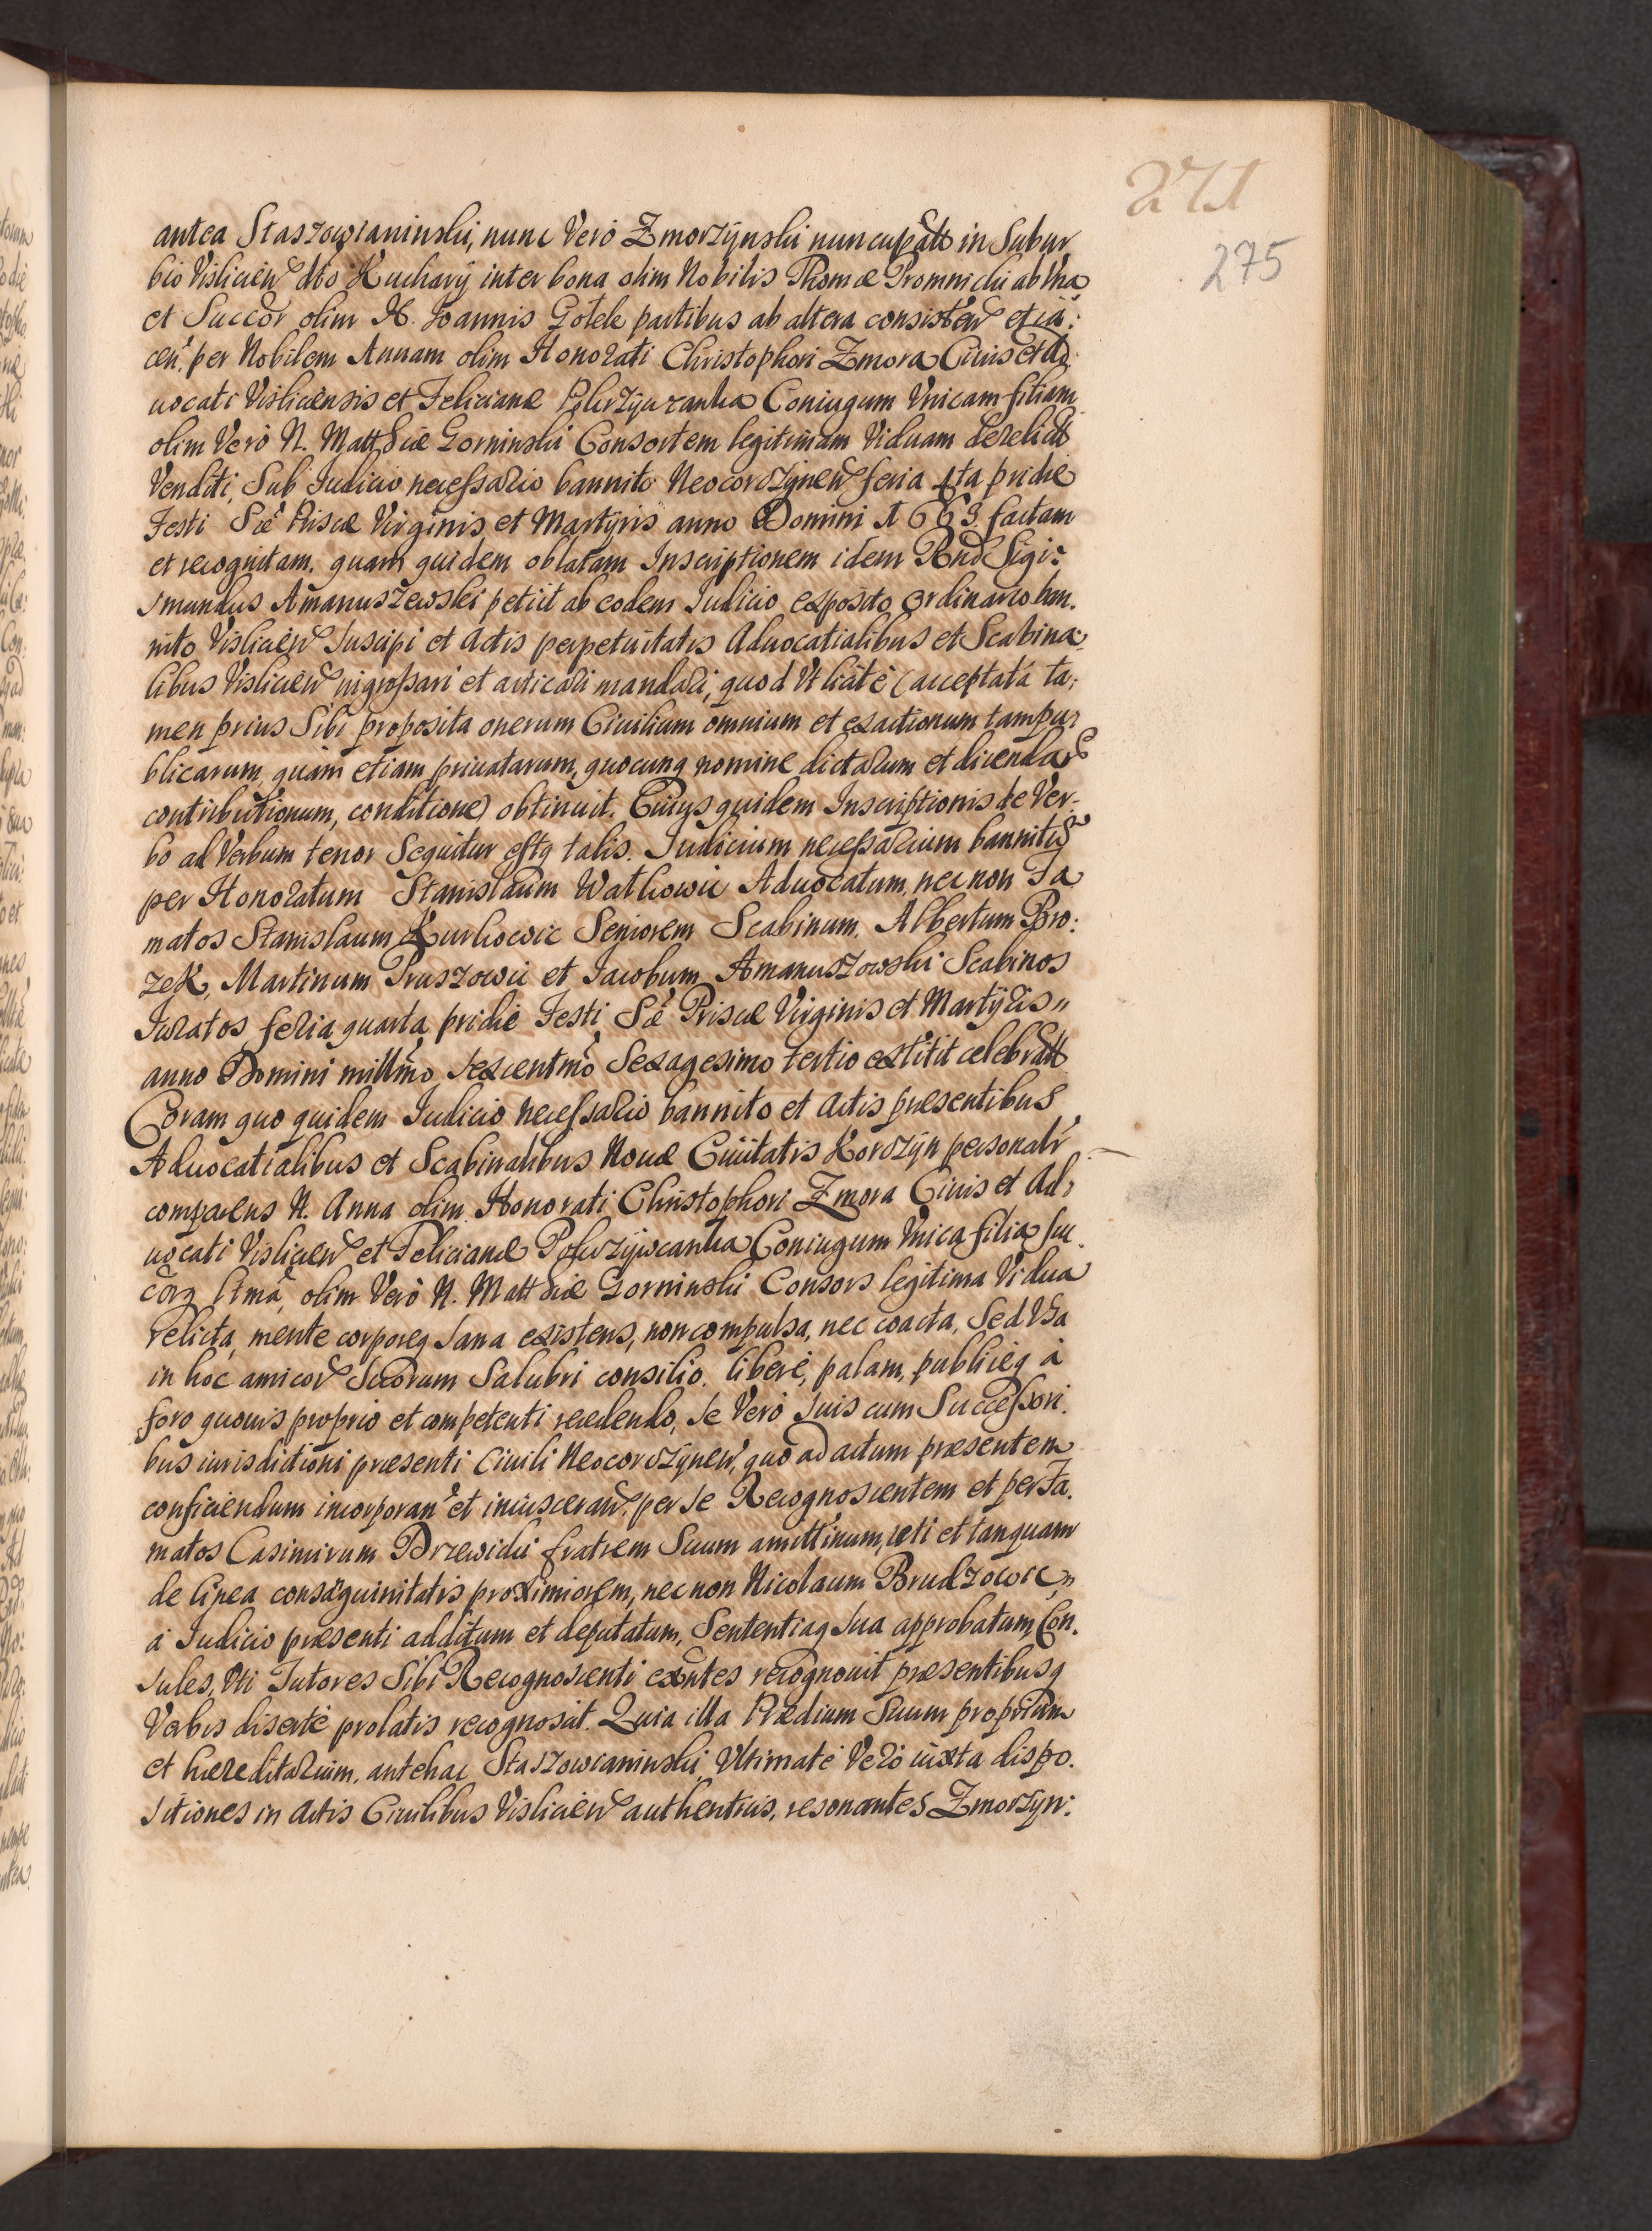 271
275
antea Staszowianinski, nunc Verò Zmorzynski nuncupatt in Subur
bio Visliciēn dto Kuchary inter bona olim Nobilis Thomæ Promnicki ab Vna
et Succōr olim N. Joannis Gołek partibus ab altera consistēn et iā:
cen̄. per Nobilem Annam olim Honorati Christophori Zmora Ciuis et Ad:
uocati Visliciensis et Felicianæ Coniugum Vnicam filiam
olim Verò N. Matthiæ Gorninski Consortem legitimam Viduam derelictt
Venditi, Sub Iudicio necessario bannito Neocorczynen feria 4ta pridie
Festi Sæ Priscæ Virginis et Martyris anno Domini 1663. factam
et recognitam. quam quidem oblatam Inscriptionem idem Rnd Sigi:
smundus Amanuszewski petiit ab eodem Iudicio exposito ordinario ban.
nito Visliciēn Suscipi et Actis perpetuitatis Aduocatialibus et Scabina
libus Visliciēn ingrossari et articari mandari, quod Vt licitè (acceptatá ta:
men prius Sibi proposita onerum Ciuilium omnium et exactionum tam pu:
blicarum, quàm etiam priuatarum, quocunq nomine dictarum et dicendar
contributionum, conditione) obtinuit. Cuius quidem Inscriptionis de Ver-
bo ad Verbum tenor Sequitur estq talis. Iudicium necessarium bannitū
per Honoratum Stanislaum Watkowic Aduocatum, nec non Fa
matos Stanislaum Kurkowic Seniorem Scabinum, Albertum Bro:
zek, Martinum Pruszowic et Iacobum Amanuszowski Scabinos
Iuratos, feria quarta pridie Festi Sæ Priscæ Virginis et Martyris "
anno Domini millmo sexcentmo Sexagesimo tertio extitit celebratt
Coram quo quidem Iudicio necessario bannito et Actis præsentibus
Aduocatialibus et Scabinalibus Nouæ Ciuitatis Korczyn personalr
comparens N. Anna olim Honorati Christophori Zmora Ciuis et Ad:
uocati Visliciēn et Felicianæ Coniugum Vnica filia suc
cōrq ltmā, olim Verò N. Matthiæ Gorninski Consors legitima Vidua
relicta, mente corporeq sana existens, non compulsa, nec coacta, Sed Vsa
in hoc amicor Suorum Salubri consilio. liberè, palam, publiceq à
foro quouis, proprio et competenti recedendo, se Verò suis cum Successori.
bus iurisdictioni præsenti Ciuili Neocorczynen, quo ad actum præsentem
conficiendum incorporan̄ et inuisceran̄. per se Recognoscentem et per Fa.
matos Casimirum Brzewicki fratrem Suum amittinum, uti et tanquam
de linea consāguinitatis proximiorem, nec non Nicolaum Brudzowic "
à Iudicio præsenti additum et deputatum, Sententiaq sua approbatum, Con.
sules, Vti Tutores Sibi Recognoscenti exntes recognouit præsentibusq
Verbis disertè prolatis recognoscit. Quia illa Prædium Suum proprium
et hæreditarium, antehac Staszowianinski, Vltimatè Verò iuxta dispo.
sitiones in Actis Ciuilibus Visliciēn authenticis, resonantes Zmorzyn: